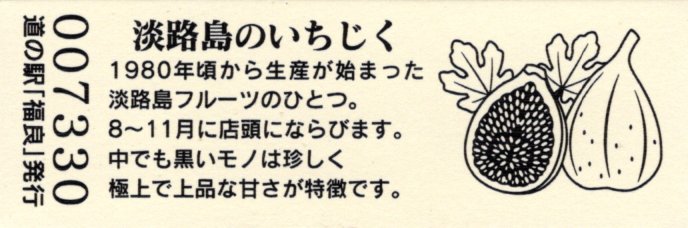 淡路島のいちじく
1980年頃から生産が始まった
淡路島フルーツのひとつ。
8~11月に店頭にならびます。
中でも黒いモノは珍しく
極上で上品な甘さが特徴です。
007330
道の駅「福良」発行